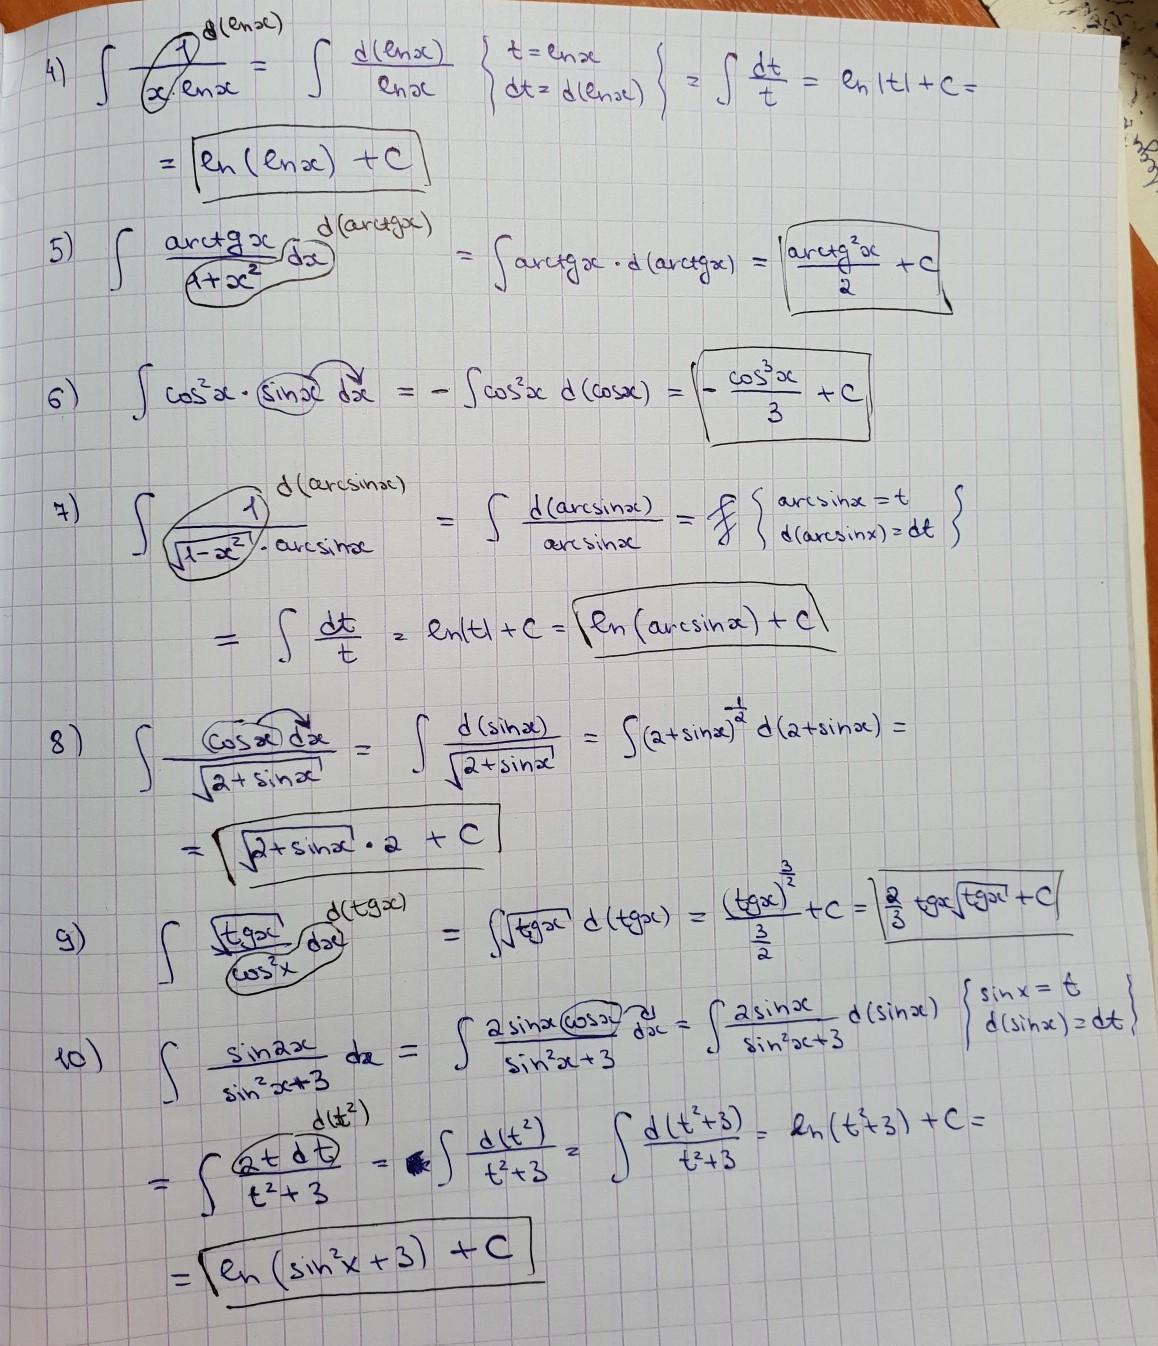 4) ∫ 1/(x·lnx) d(lnx) = ∫ d(lnx)/lnx {t = lnx dt = d(lnx)} = ∫ dt/t = ln|t| + C =
= ln(lnx) + C
5) ∫ arctgx/(1+x²) dx d(arctgx) = ∫arctgx · d(arctgx) = arctg²x/2 + C
6) ∫ cos²x · sinx dx = - ∫cos²x d(cosx) = - cos³x/3 + C
7) ∫ 1/(√(1-x²) · arcsinx) d(arcsinx) = ∫ d(arcsinx)/arcsinx = {arcsinx = t d(arcsinx) = dt}
= ∫ dt/t = ln|t| + C = ln(arcsinx) + C
8) ∫ cosx dx/√(2+sinx) = ∫ d(sinx)/√(2+sinx) = ∫(2+sinx)^(-1/2) d(2+sinx) =
= √(2+sinx) · 2 + C
9) ∫ √(tgx)/cos²x dx d(tgx) = ∫√(tgx) d(tgx) = (tgx)^(3/2)/(3/2) + C = 2/3 tgx√(tgx) + C
10) ∫ sin2x/(sin²x+3) dx = ∫ 2sinx cosx/(sin²x+3) dx = ∫ 2sinx/(sin²x+3) d(sinx) {sinx = t d(sinx) = dt}
= ∫ 2t dt/(t²+3) d(t²) = ∫ d(t²)/(t²+3) = ∫ d(t²+3)/(t²+3) = ln(t²+3) + C =
= ln(sin²x+3) + C